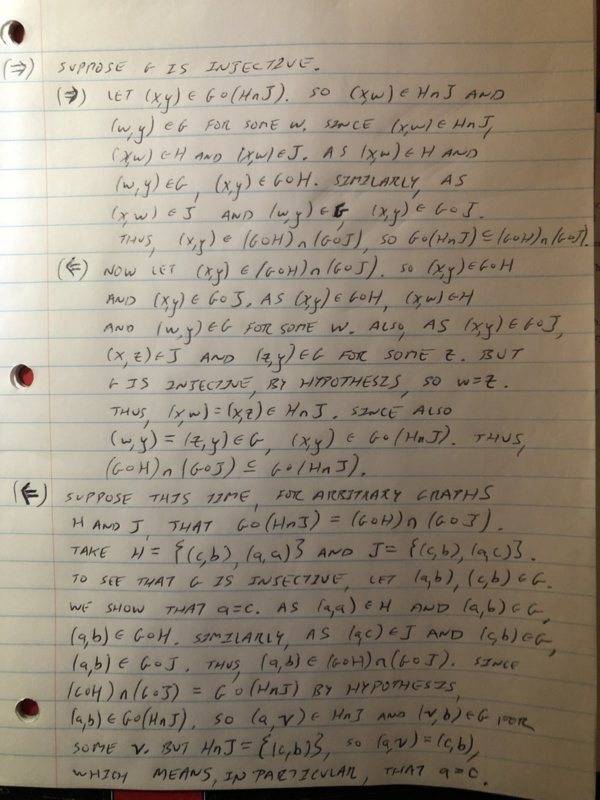 (⇒) SUPPOSE G IS INJECTIVE.
(⇒) LET (x,y) ∈ G∘(H∩J). SO (x,w) ∈ H∩J AND
(w,y) ∈ G FOR SOME w. SINCE (x,w) ∈ H∩J,
(x,w) ∈ H AND (x,w) ∈ J. AS (x,w) ∈ H AND
(w,y) ∈ G, (x,y) ∈ G∘H. SIMILARLY, AS
(x,w) ∈ J AND (w,y) ∈ G, (x,y) ∈ G∘J.
THUS, (x,y) ∈ (G∘H)∩(G∘J), SO G∘(H∩J) ⊆ (G∘H)∩(G∘J).
(⇐) NOW LET (x,y) ∈ (G∘H)∩(G∘J). SO (x,y) ∈ G∘H
AND (x,y) ∈ G∘J. AS (x,y) ∈ G∘H, (x,w) ∈ H
AND (w,y) ∈ G FOR SOME w. ALSO, AS (x,y) ∈ G∘J,
(x,z) ∈ J AND (z,y) ∈ G FOR SOME z. BUT
G IS INJECTIVE, BY HYPOTHESIS, SO w=z.
THUS, (x,w) = (x,z) ∈ H∩J. SINCE ALSO
(w,y) = (z,y) ∈ G, (x,y) ∈ G∘(H∩J). THUS,
(G∘H)∩(G∘J) ⊆ G∘(H∩J).
(⇐) SUPPOSE THIS TIME, FOR ARBITRARY GRAPHS
H AND J, THAT G∘(H∩J) = (G∘H)∩(G∘J).
TAKE H = {(c,b), (a,a)} AND J = {(c,b), (a,c)}.
TO SEE THAT G IS INJECTIVE, LET (a,b), (c,b) ∈ G.
WE SHOW THAT a=c. AS (a,a) ∈ H AND (a,b) ∈ G,
(a,b) ∈ G∘H. SIMILARLY, AS (a,c) ∈ J AND (c,b) ∈ G,
(a,b) ∈ G∘J. THUS, (a,b) ∈ (G∘H)∩(G∘J). SINCE
(G∘H)∩(G∘J) = G∘(H∩J) BY HYPOTHESIS,
(a,b) ∈ G∘(H∩J). SO (a,v) ∈ H∩J AND (v,b) ∈ G FOR
SOME v. BUT H∩J = {(c,b)}, SO (a,v) = (c,b),
WHICH MEANS, IN PARTICULAR, THAT a=c.